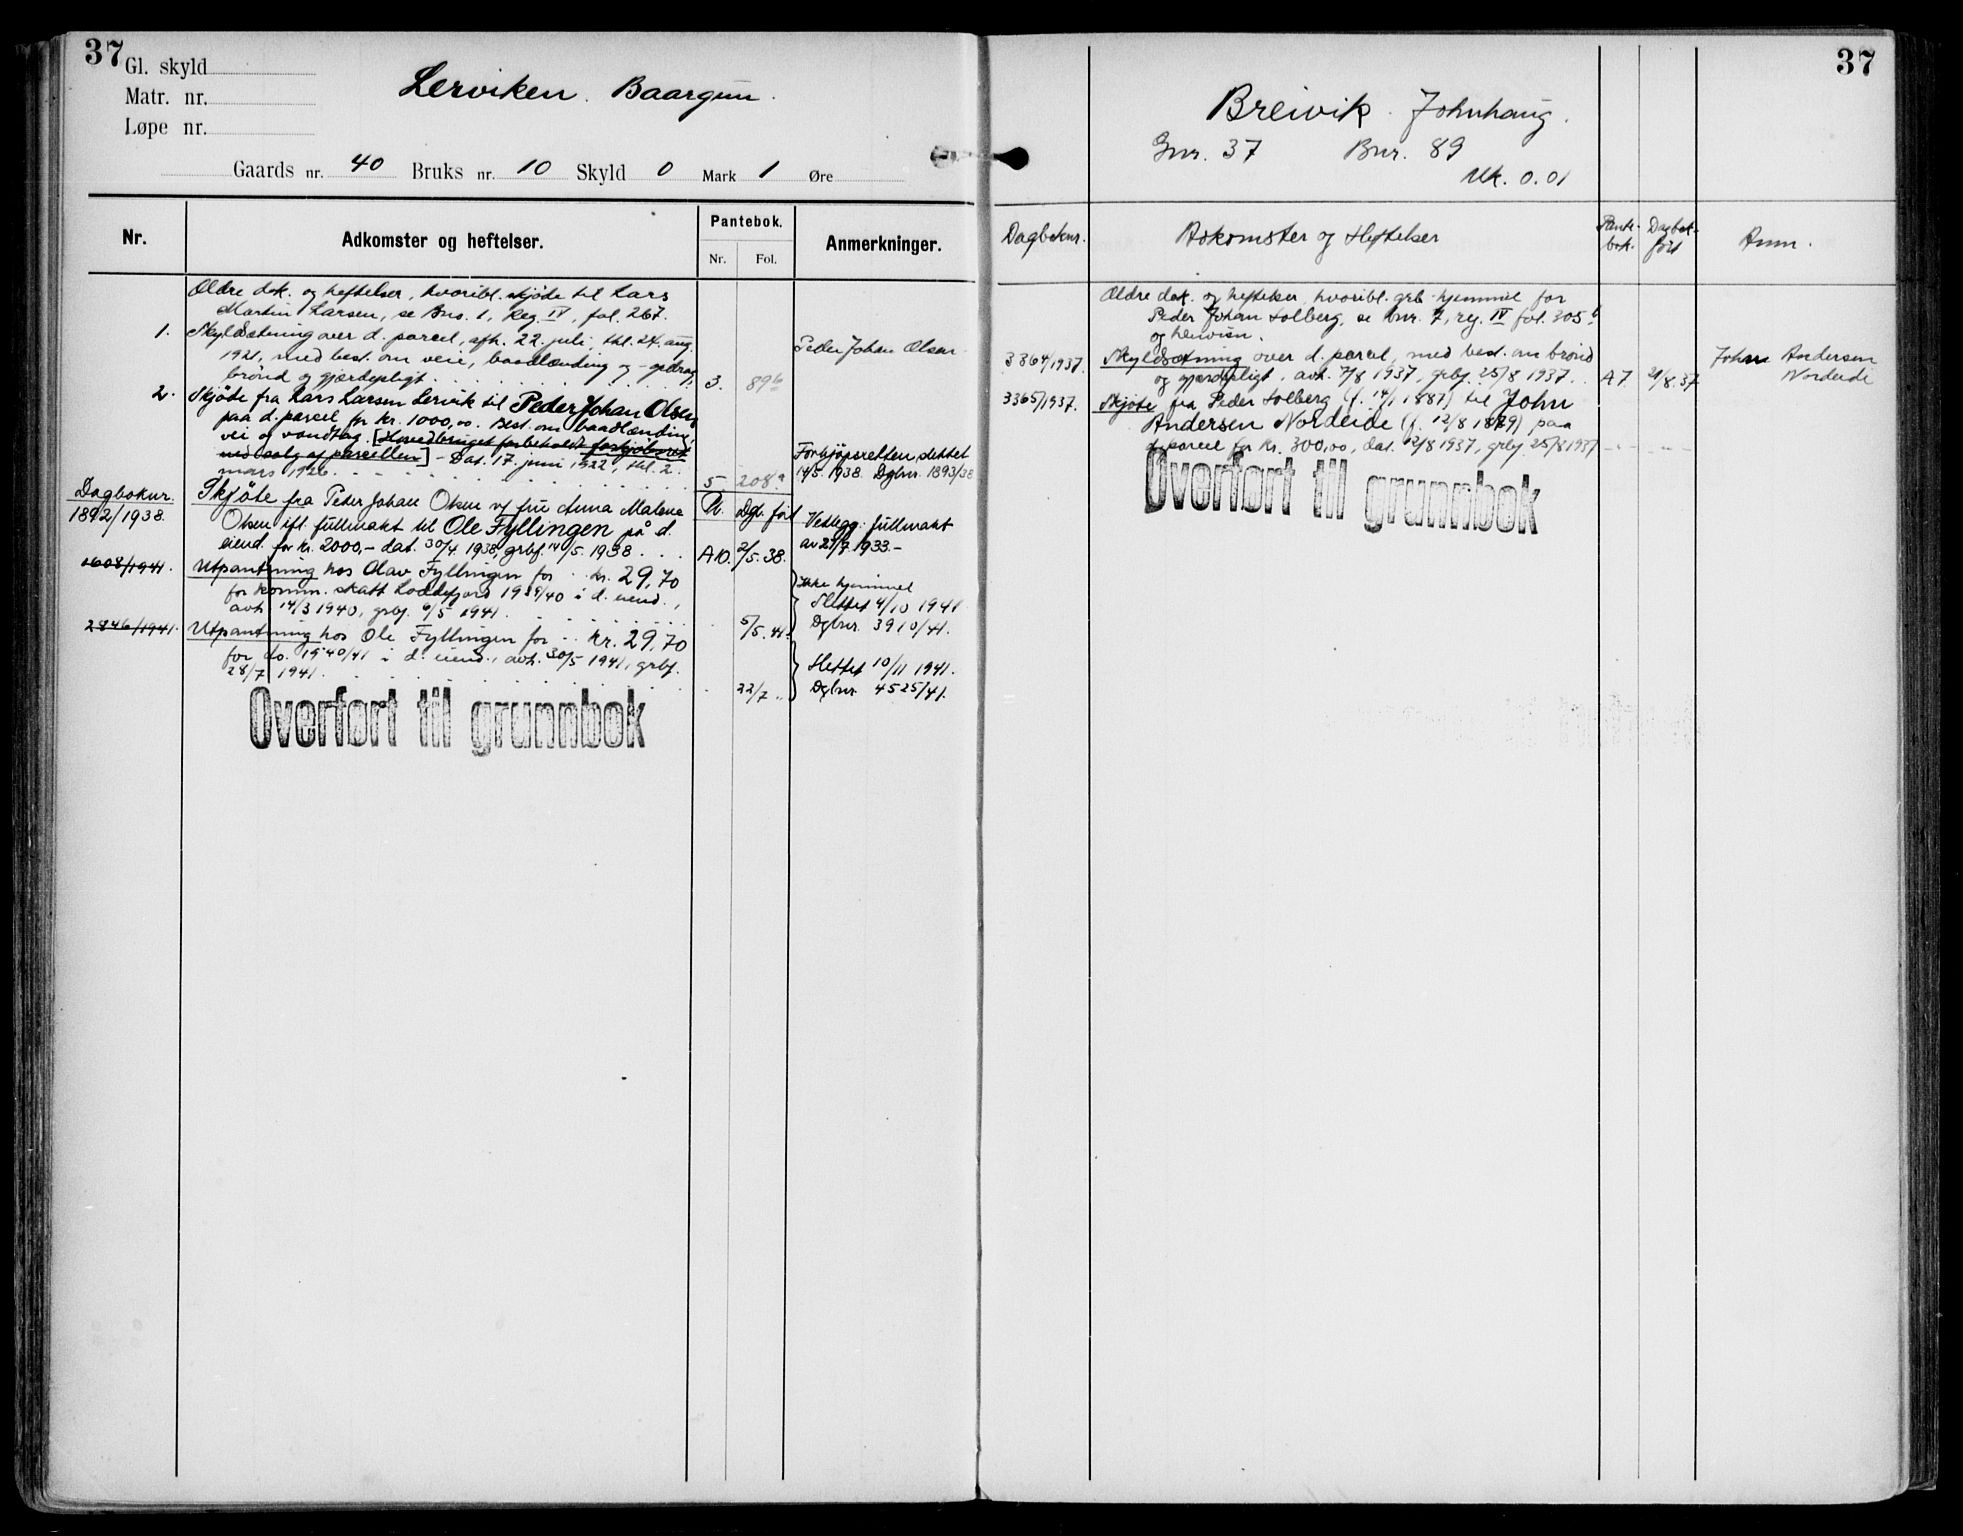 37
Gl. skyld
Matr. nr.
Løpe nr.
Lerviken. Baargun.
Gaards nr. 40 Bruks nr. 10 Skyld 0 Mark 1 Øre
Nr. Adkomster og heftelser. Pantebok. Nr. Fol. Anmerkninger.
Ældre dok. og heftelser, hvoribl. skjøde til Lars
Martin Larsen, se Bno. 1, Reg. IV, fol. 267.
1. Skyldsetning over d. parcel, afh. 22. juli, thl. 24. aug. Peder Johan Olsen
1921, med best. om veie, baadlænding og -opdrag,
brönd og gjærdepligt. 3. 89b
2. Skjöde fra Lars Larsen Lervik til Peder Johan Olsen
paa d. parcel for kr. 1000,00. Best. om baadlænding,
vei og vandtag. [Hovedbruget forbeholdt forkjöbsret
ved salg af parcellen] - Dat. 17. juni 1922, thl. 2. Forkjøpsretten slettet
mars 1926. 5. 208a 14/5. 1938. Dgbnr. 1893/38
Dagboknr. Skjöte fra Peder Johan Olsen v/ fru Anna Malene A. Dgb. ført
1892/1938. Olsen ifl. fullmakt til Ole Fyllingen på d. Vedlegg: fullmakt
eiend. for kr. 2000,- dat. 30/4. 1938, grbf. 14/5. 1938 A10. 2/5. 38. av 27/7. 1933.-
1608/1941. Utpantning hos Olav Fyllingen for kr. 29,70 Ikke hjemmel
for komm. skatt Loddefjord 1939/40 i d. eiend., Slettet 4/10 1941
avh. 14/3 1940, grbf. 6/5 1941. 5/5. 41. Dgbnr. 3910/41.
2846/1941. Utpantning hos Ole Fyllingen for kr. 29,70
for do. 1940/41 i d. eiend., avh. 30/5 1941, grbf. Slettet 10/11 1941.
28/7 1941. 22/7 „ Dgbnr. 4525/41.
Overført til grunnbok
37
Breivik. Johnhaug.
Gnr. 37 Bnr. 89
Mk. 0.01
Dagboknr. Adkomster og Heftelser Pante-bok. Dagbok-ført Anm.
Ældre dok. og heftelser, hvoribl. grb. hjemmel for
Peder Johan Solberg, se bnr. 7, reg. IV fol. 305b
og henvisn.
3364/1937. Skyldsætning over d. parcel, med best. om brönd John Andersen
og gjærdepligt, avh. 7/8 1937, grbf. 25/8 1937. A7. 21/8. 37 Nordeide
3365/1937. Skjöte fra Peder Solberg (f. 14/1 1887) til John
Andersen Nordeide (f. 12/8 1879) paa
d. parcel for kr. 300,00, dat. 12/8 1937, grbf 25/8 1937 - - - -
Overført til grunnbok